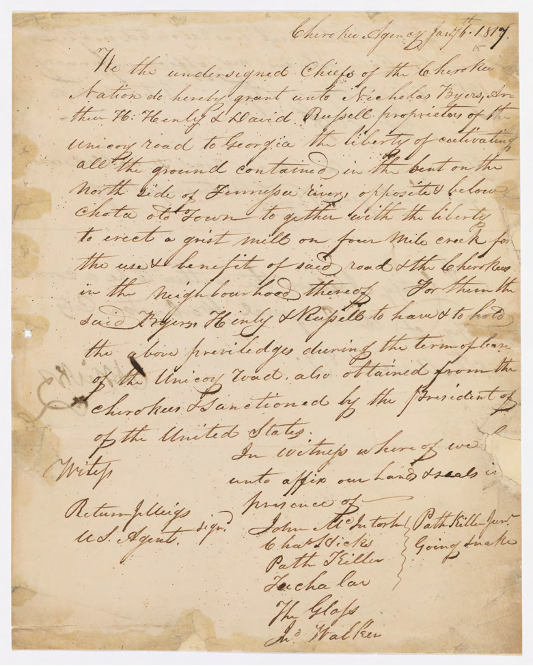 Cherokee Agency Jany. 6th. 1817.
We the undersigned Chiefs of the Cherokee
Nation do hereby grant unto Nicholas Byers, Ar
thur H. Henly & David Russell proprietors of the
Unicoy road to Georgia the liberty of cultivating
all the ground contained in the bent on the
North side of Tennessee river, opposite & below
Chota old Town to gether with the liberty
to erect a grist mill on four mile creek for
the use & benefit of said road & the Cherokees
in the Neighbourhood thereof For them the
said Byers Henly & Russell to have & to hold
the above priviledges during the term of lease
of the Unicoy road. also obtained from the
Cherokees & Sanctioned by the President of
of the United States.
In Witness where of we
unto affix our hands & seals in
Witness
presence of
Return J. Meigs
U.S. Agent.
sign'd
John McIntosh
Chas. Hicks
Path Killer
Tucha lar
The Glass
Jno. Walker
Path Killer Junr.
Going Snake